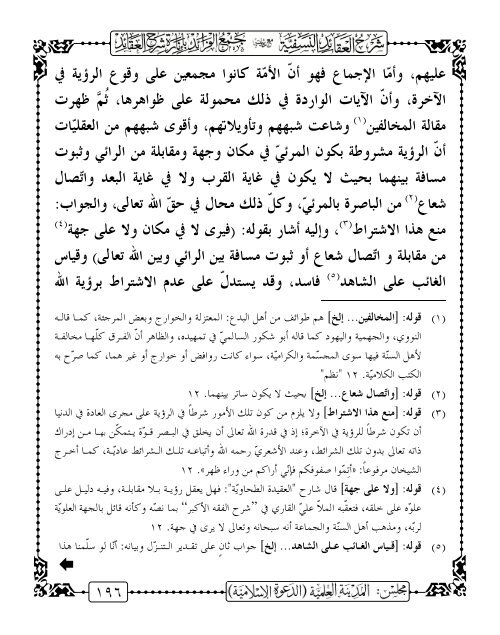 شرح العقائد النسفية مع جمع الفرائد بإنارة شرح العقائد
عليهم، وأمّا الإجماع فهو أنّ الأمّة كانوا مجمعين على وقوع الرؤية في
الآخرة، وأنّ الآيات الواردة في ذلك محمولة على ظواهرها، ثُمَّ ظهرت
مقالة المخالفين(١) وشاعت شبههم وتأويلاتهم، وأقوى شبههم من العقليّات
أنّ الرؤية مشروطة بكون المرئيّ في مكان وجهة ومقابلة من الرائي وثبوت
مسافة بينهما بحيث لا يكون في غاية القرب ولا في غاية البعد واتّصال
شعاع(٢) من الباصرة بالمرئيّ، وكلّ ذلك محال في حقّ الله تعالى، والجواب:
منع هذا الاشتراط(٣)، وإليه أشار بقوله: (فيرى لا في مكان ولا على جهة(٤)
من مقابلة و اتّصال شعاع أو ثبوت مسافة بين الرائي وبين الله تعالى) وقياس
الغائب على الشاهد(٥) فاسد، وقد يستدلّ على عدم الاشتراط برؤية الله
(١) قوله: [المخالفين... إلخ] هم طوائف من أهل البدع: المعتزلة والخوارج وبعض المرجئة، كما قاله
النووي، والجهمية واليهود كما قاله أبو شكور السالميّ في تمهيده، والظاهر أنّ الفرق كلّها مخالفة
لأهل السنّة فيها سوى المجسّمة والكراميّة، سواء كانت روافض أو خوارج أو غير هما، كما صرّح به
الكتب الكلاميّة. ١٢ "نظم"
(٢) قوله: [واتّصال شعاع... إلخ] بحيث لا يكون ساتر بينهما. ١٢
(٣) قوله: [منع هذا الاشتراط] ولا يلزم من كون تلك الأمور شرطاً في الرؤية على مجرى العادة في الدنيا
أن تكون شرطاً للرؤية في الآخرة؛ إذ في قدرة الله تعالى أن يخلق في البصر قوّة يتمكّن بها من إدراك
ذاته تعالى بدون تلك الشرائط، وعند الأشعريّ رحمه الله وأتباعه تلك الشرائط عاديّة، كما أخرج
الشيخان مرفوعاً: «أتمّوا صفوفكم فإنّي أراكم من وراء ظهر». ١٢
(٤) قوله: [ولا على جهة] قال شارح "العقيدة الطحاويّة": فهل يعقل رؤية بلا مقابلة، وفيه دليل على
علوّه على خلقه، فتعقّبه الملاّ عليّ القاري في "شرح الفقه الأكبر" بما نصّه وكأنه قائل بالجهة العلويّة
لربّه، ومذهب أهل السنّة والجماعة أنه سبحانه وتعالى لا يرى في جهة. ١٢
(٥) قوله: [قياس الغائب على الشاهد... إلخ] جواب ثانٍ على تقدير التنزل وبيانه: أنّا لو سلّمنا هذا
مجلس: المدينة العلمية (الدعوة الإسلامية)
١٩٦